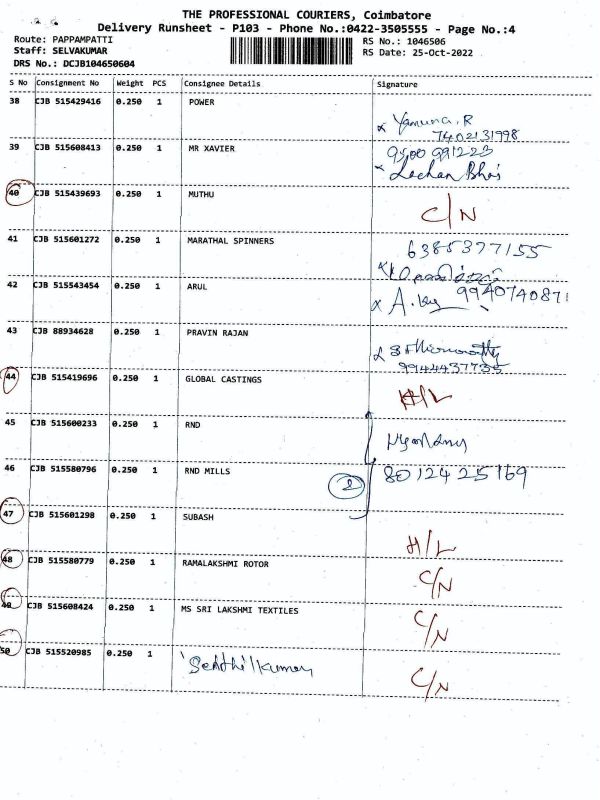 THE PROFESSIONAL COURIERS, Coimbatore
Delivery Runsheet - P103 - Phone No.:0422-3505555 - Page No.:4
Route: PAPPAMPATTI
RS No.: 1046506
Staff: SELVAKUMAR
RS Date: 25-Oct-2022
DRS No.: DCJB104650604
S No Consignment No Weight PCS Consignee Details Signature
38 CJB 515429416 0.250 1 POWER
Yamuna.R
7402131998
39 CJB 515608413 0.250 1 MR XAVIER
9500 991223
Lachan Bhai
40 CJB 515439693 0.250 1 MUTHU
C/N
41 CJB 515601272 0.250 1 MARATHAL SPINNERS
6385377155
42 CJB 515543454 0.250 1 ARUL
9940740871
43 CJB 88934628 0.250 1 PRAVIN RAJAN
9944437735
44 CJB 515419696 0.250 1 GLOBAL CASTINGS
H/L
45 CJB 515600233 0.250 1 RND
46 CJB 515580796 0.250 1 RND MILLS
2
80124 25169
47 CJB 515601298 0.250 1 SUBASH
H/L
48 CJB 515580779 0.250 1 RAMALAKSHMI ROTOR
C/N
49 CJB 515608424 0.250 1 MS SRI LAKSHMI TEXTILES
C/N
50 CJB 515520985 0.250 1 Senthilkumar
C/N